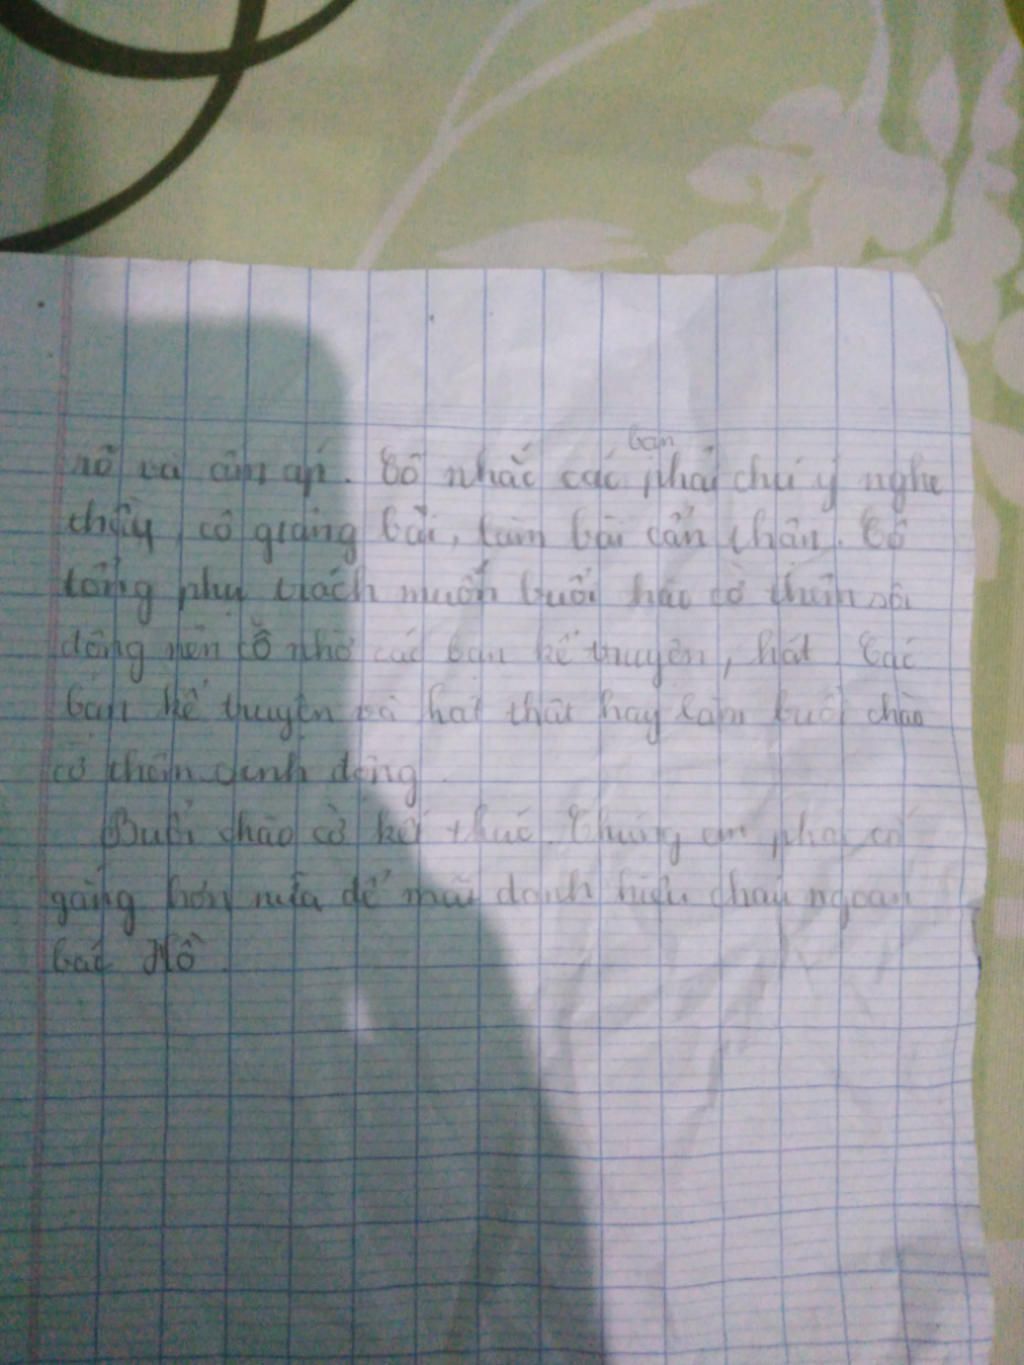 bạn
rõ và ôn ấp. Cô nhắc các phải chú ý nghe
thầy, cô giảng bài, làm bài cẩn thận. Cô
tổng phụ trách muốn buổi chào cờ thêm sôi
động nên cô nhờ các bạn kể truyện, hát. Các
bạn kể truyện và hát thật hay làm buổi chào
cờ thêm sinh động.
Buổi chào cờ kết thúc. Chúng em phải cố
gắng hơn nữa để mãi danh hiệu cháu ngoan
bác Hồ.